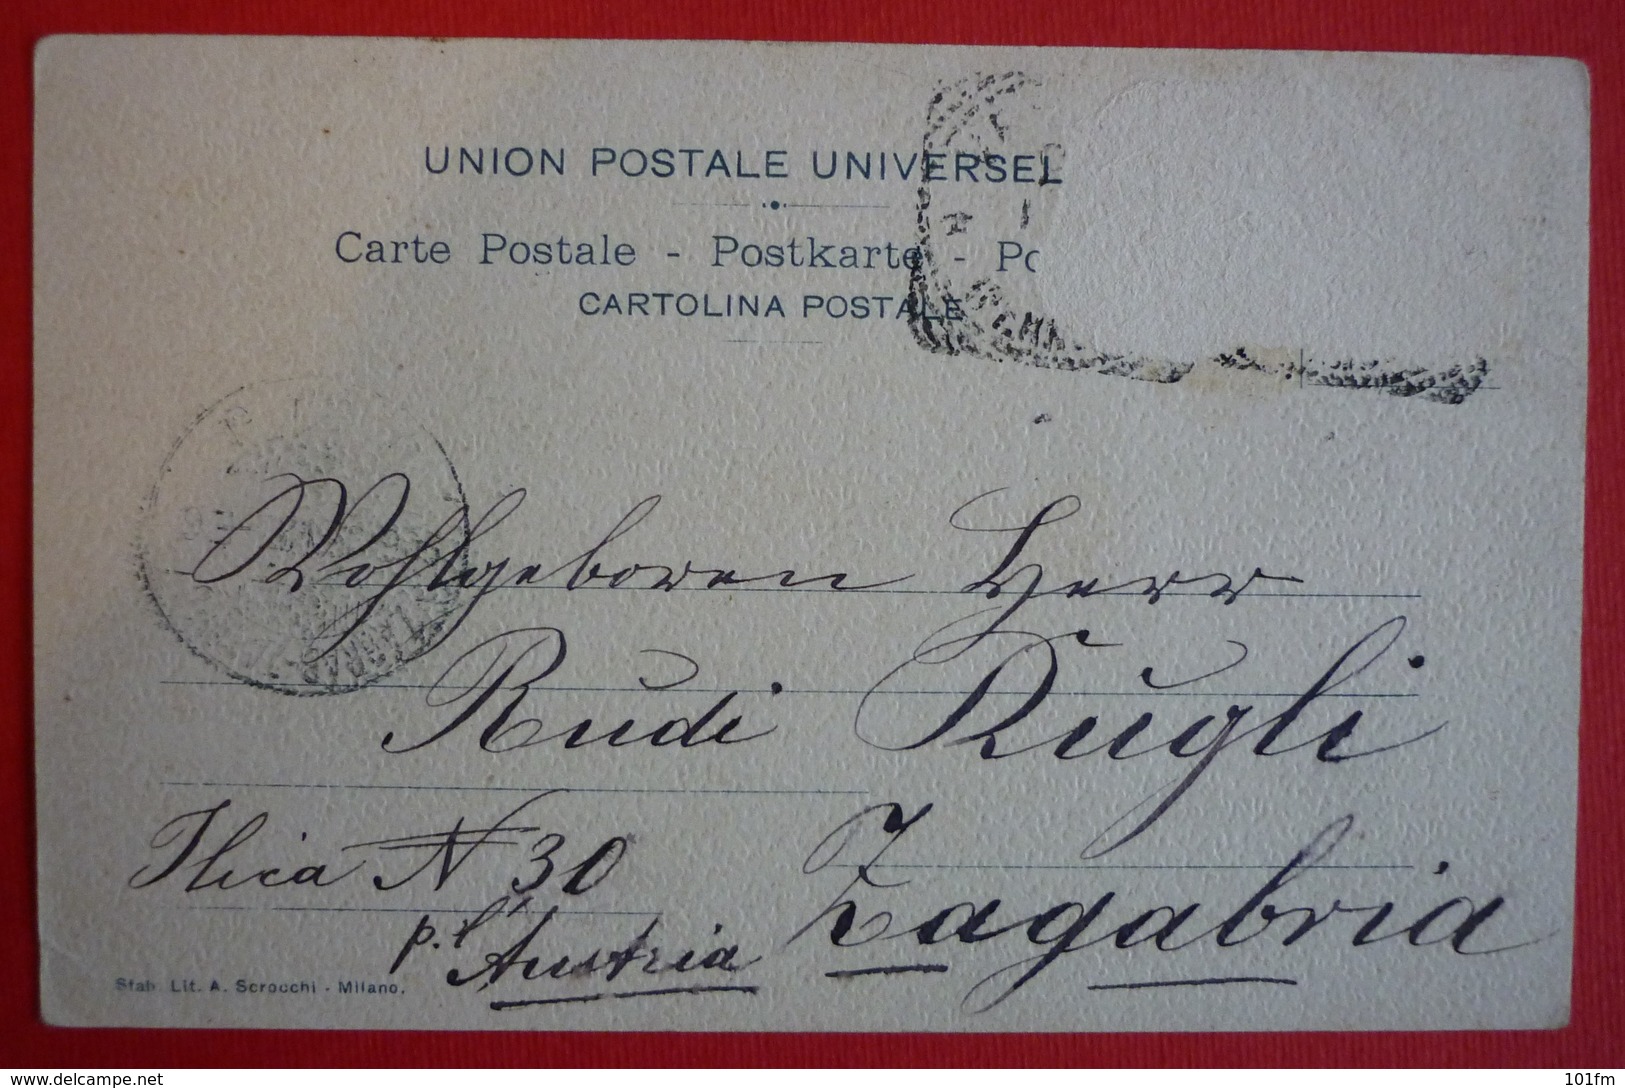 UNION POSTALE UNIVERSEL
Carte Postale - Postkarte - Po
CARTOLINA POSTALE
Wohlgeboren Herr
Rudi Kugli
Ilica N 30
Zagabria
p. l'Austria
Stab. Lit. A. Scrocchi - Milano.
delcampe.net
101fm